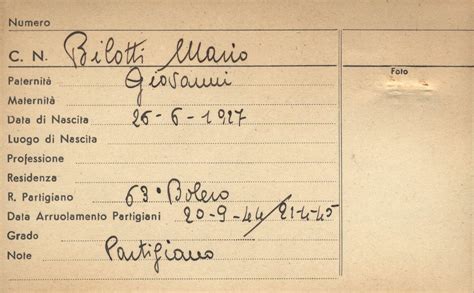 Numero
C. N. Bilotti Mario
Foto
Paternità Giovanni
Maternità
Data di Nascita 26-6-1927
Luogo di Nascita
Professione
Residenza
R. Partigiano 63° Bolero
Data Arruolamento Partigiani 20-9-44/21-4-45
Grado
Note Partigiano